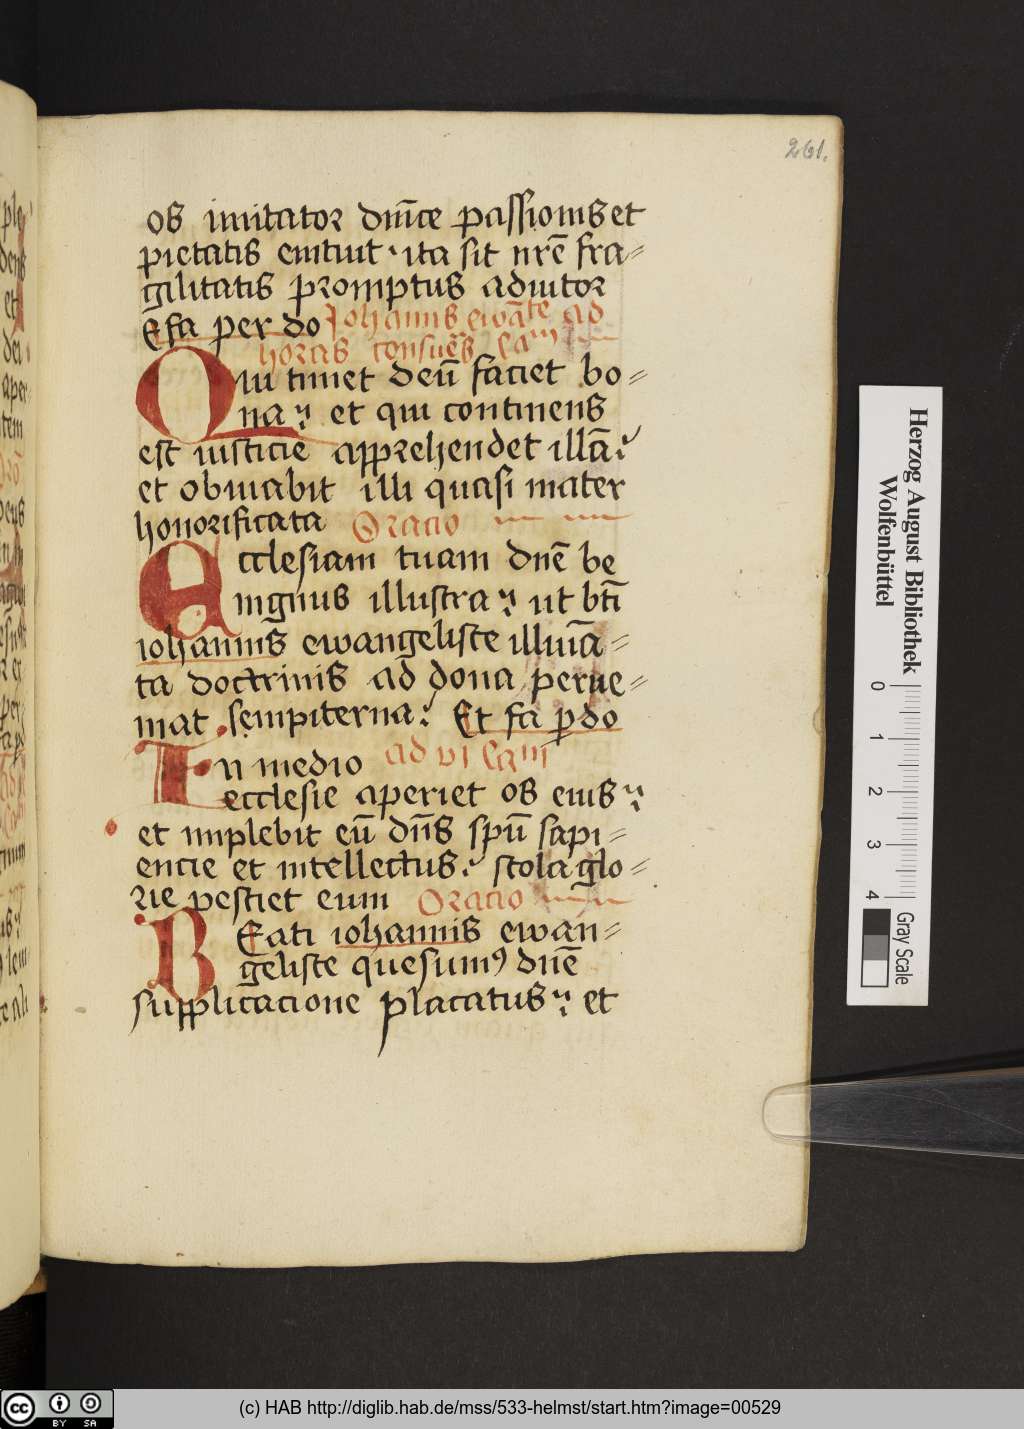 261.
os imitator dnīce passionis et
pietatis emitiut ita sit nr̄e fra=
gilitatis promptus adiutor
Et fa per do Iohannis ewāte ad
horas consuēs Cam
Qui timet deū faciet bo=
na et qui continens
est iusticie apprehendet illā
et obuiabit illi quasi mater
honorificata Oracio
Ecclesiam tuam dnē be
nignus illustra ut btī
iohannis ewangeliste illuīa=
ta doctrinis ad dona perue=
niat sempiterna Et fa p do
In medio ad vi Cam
ecclesie aperiet os eius
et implebit eū dn̄s spū sapi=
encie et intellectus stola glo=
rie vestiet eum Oracio
Beati iohannis ewan=
geliste quesumꝰ dnē
supplicacione placatus et
Herzog August Bibliothek
Wolfenbüttel
0 1 2 3 4
Gray Scale
cc BY SA
(c) HAB http://diglib.hab.de/mss/533-helmst/start.htm?image=00529